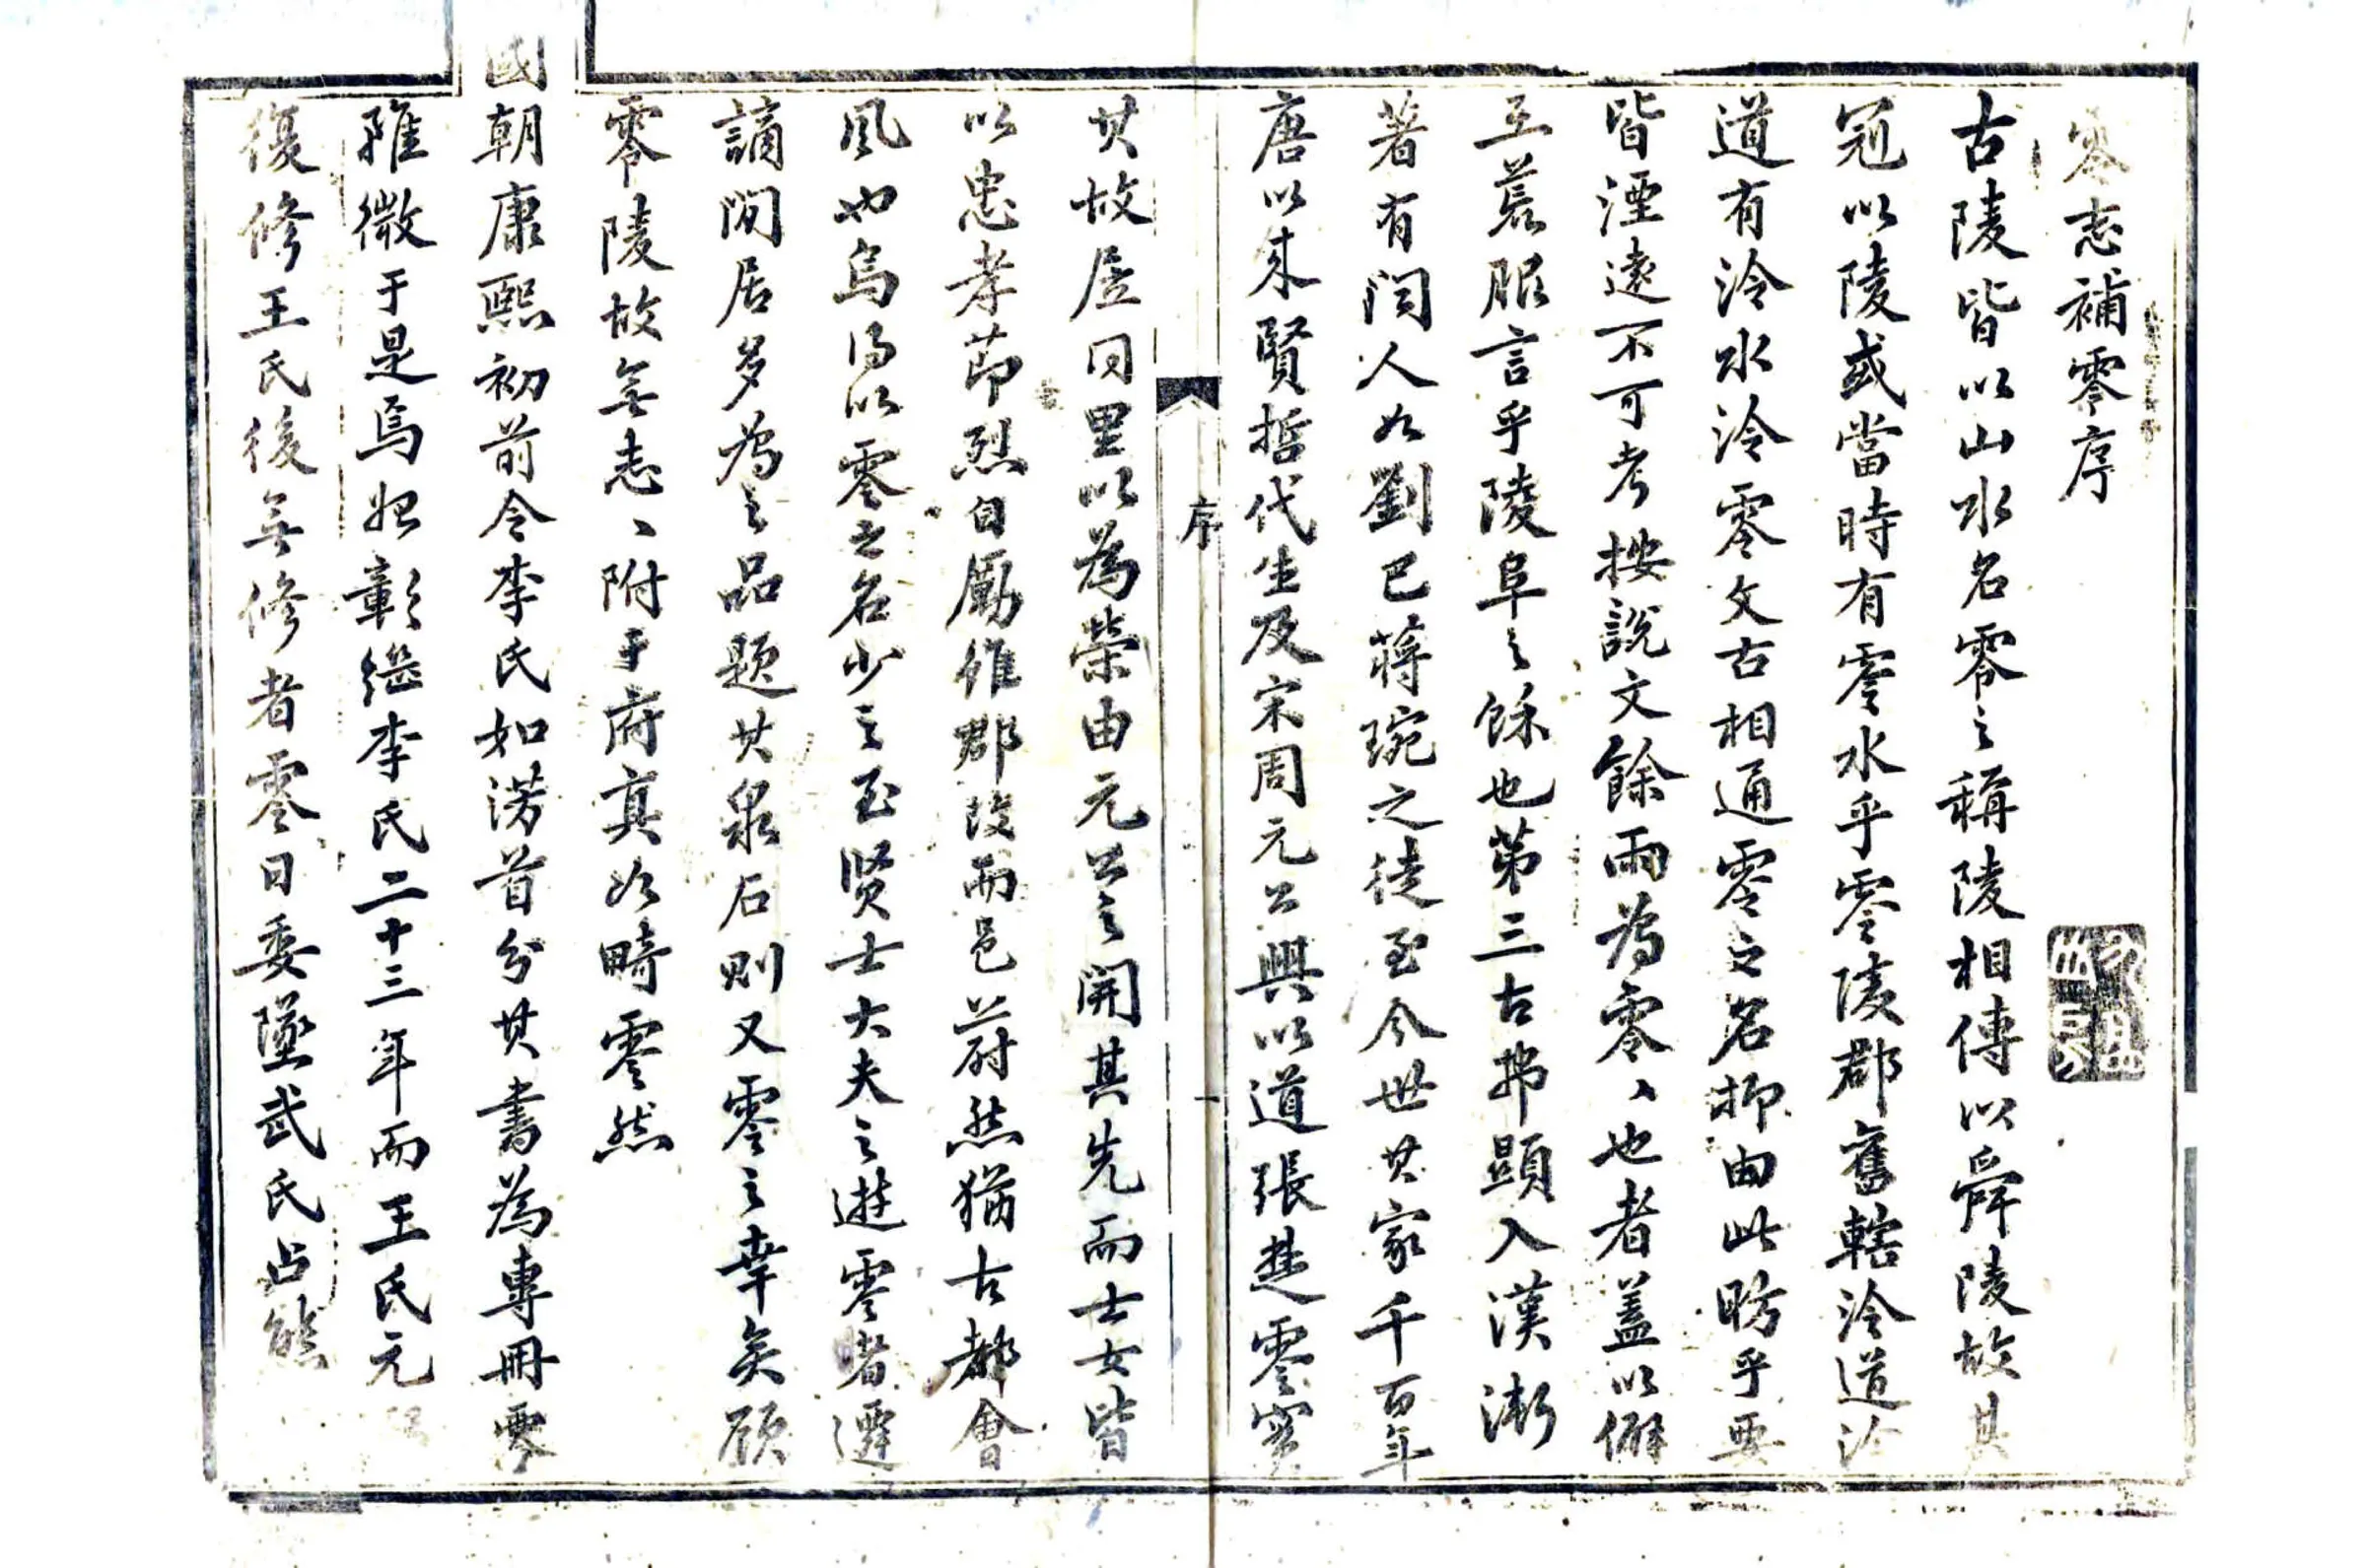 零志補零序
古陵皆以山水名零之稱陵相傳以舜陵故其
冠以陵或當時有零水乎零陵郡舊轄泠道泠
道有泠水泠零文古相通零之名抑由此昉乎要
皆湮遠不可考按說文餘雨為零、也者蓋以僻
在荒服言乎陵阜之餘也第三古弗顯入漢漸
著有聞人如劉巴蔣琬之徒至今世其家千百年
唐以來賢哲代生及宋周元公興以道張楚零實
其故居同里以為榮由元公之開其先而士女皆
以忠孝節烈自勵維郡改而邑蔚然猶古都會
風也烏得以零之名少之至賢士大夫之遊零者遷
謫閒居多為之品題其泉石則又零之幸矣顧
零陵故無志、附于府真如畸零然
國朝康熙初前令李氏如澇首分其書為專冊零
雖微于是焉始彰繼李氏二十三年而王氏元
復修王氏後無修者零日委墜武氏占熊
序